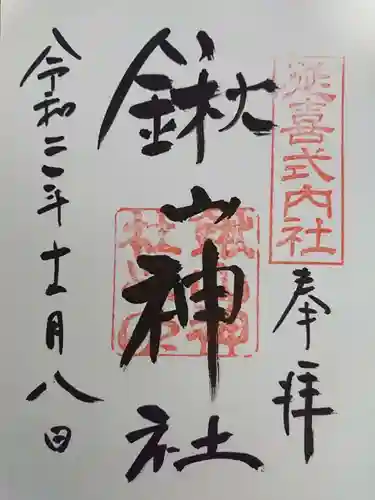 延喜式内社
奉拝
鍬山神社
令和二年十一月八日